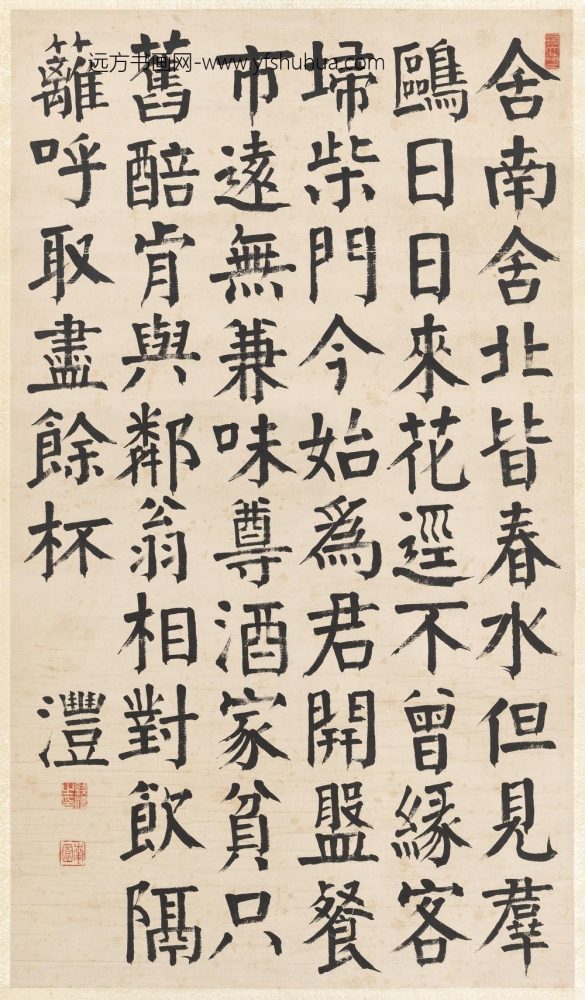 远方书画网-www.yfshuhua.com
舍南舍北皆春水但見羣
鷗日日來花逕不曾緣客
埽柴門今始爲君開盤餐
市遠無兼味尊酒家貧只
舊醅肯與鄰翁相對飲隔
籬呼取盡餘杯
灃
南園